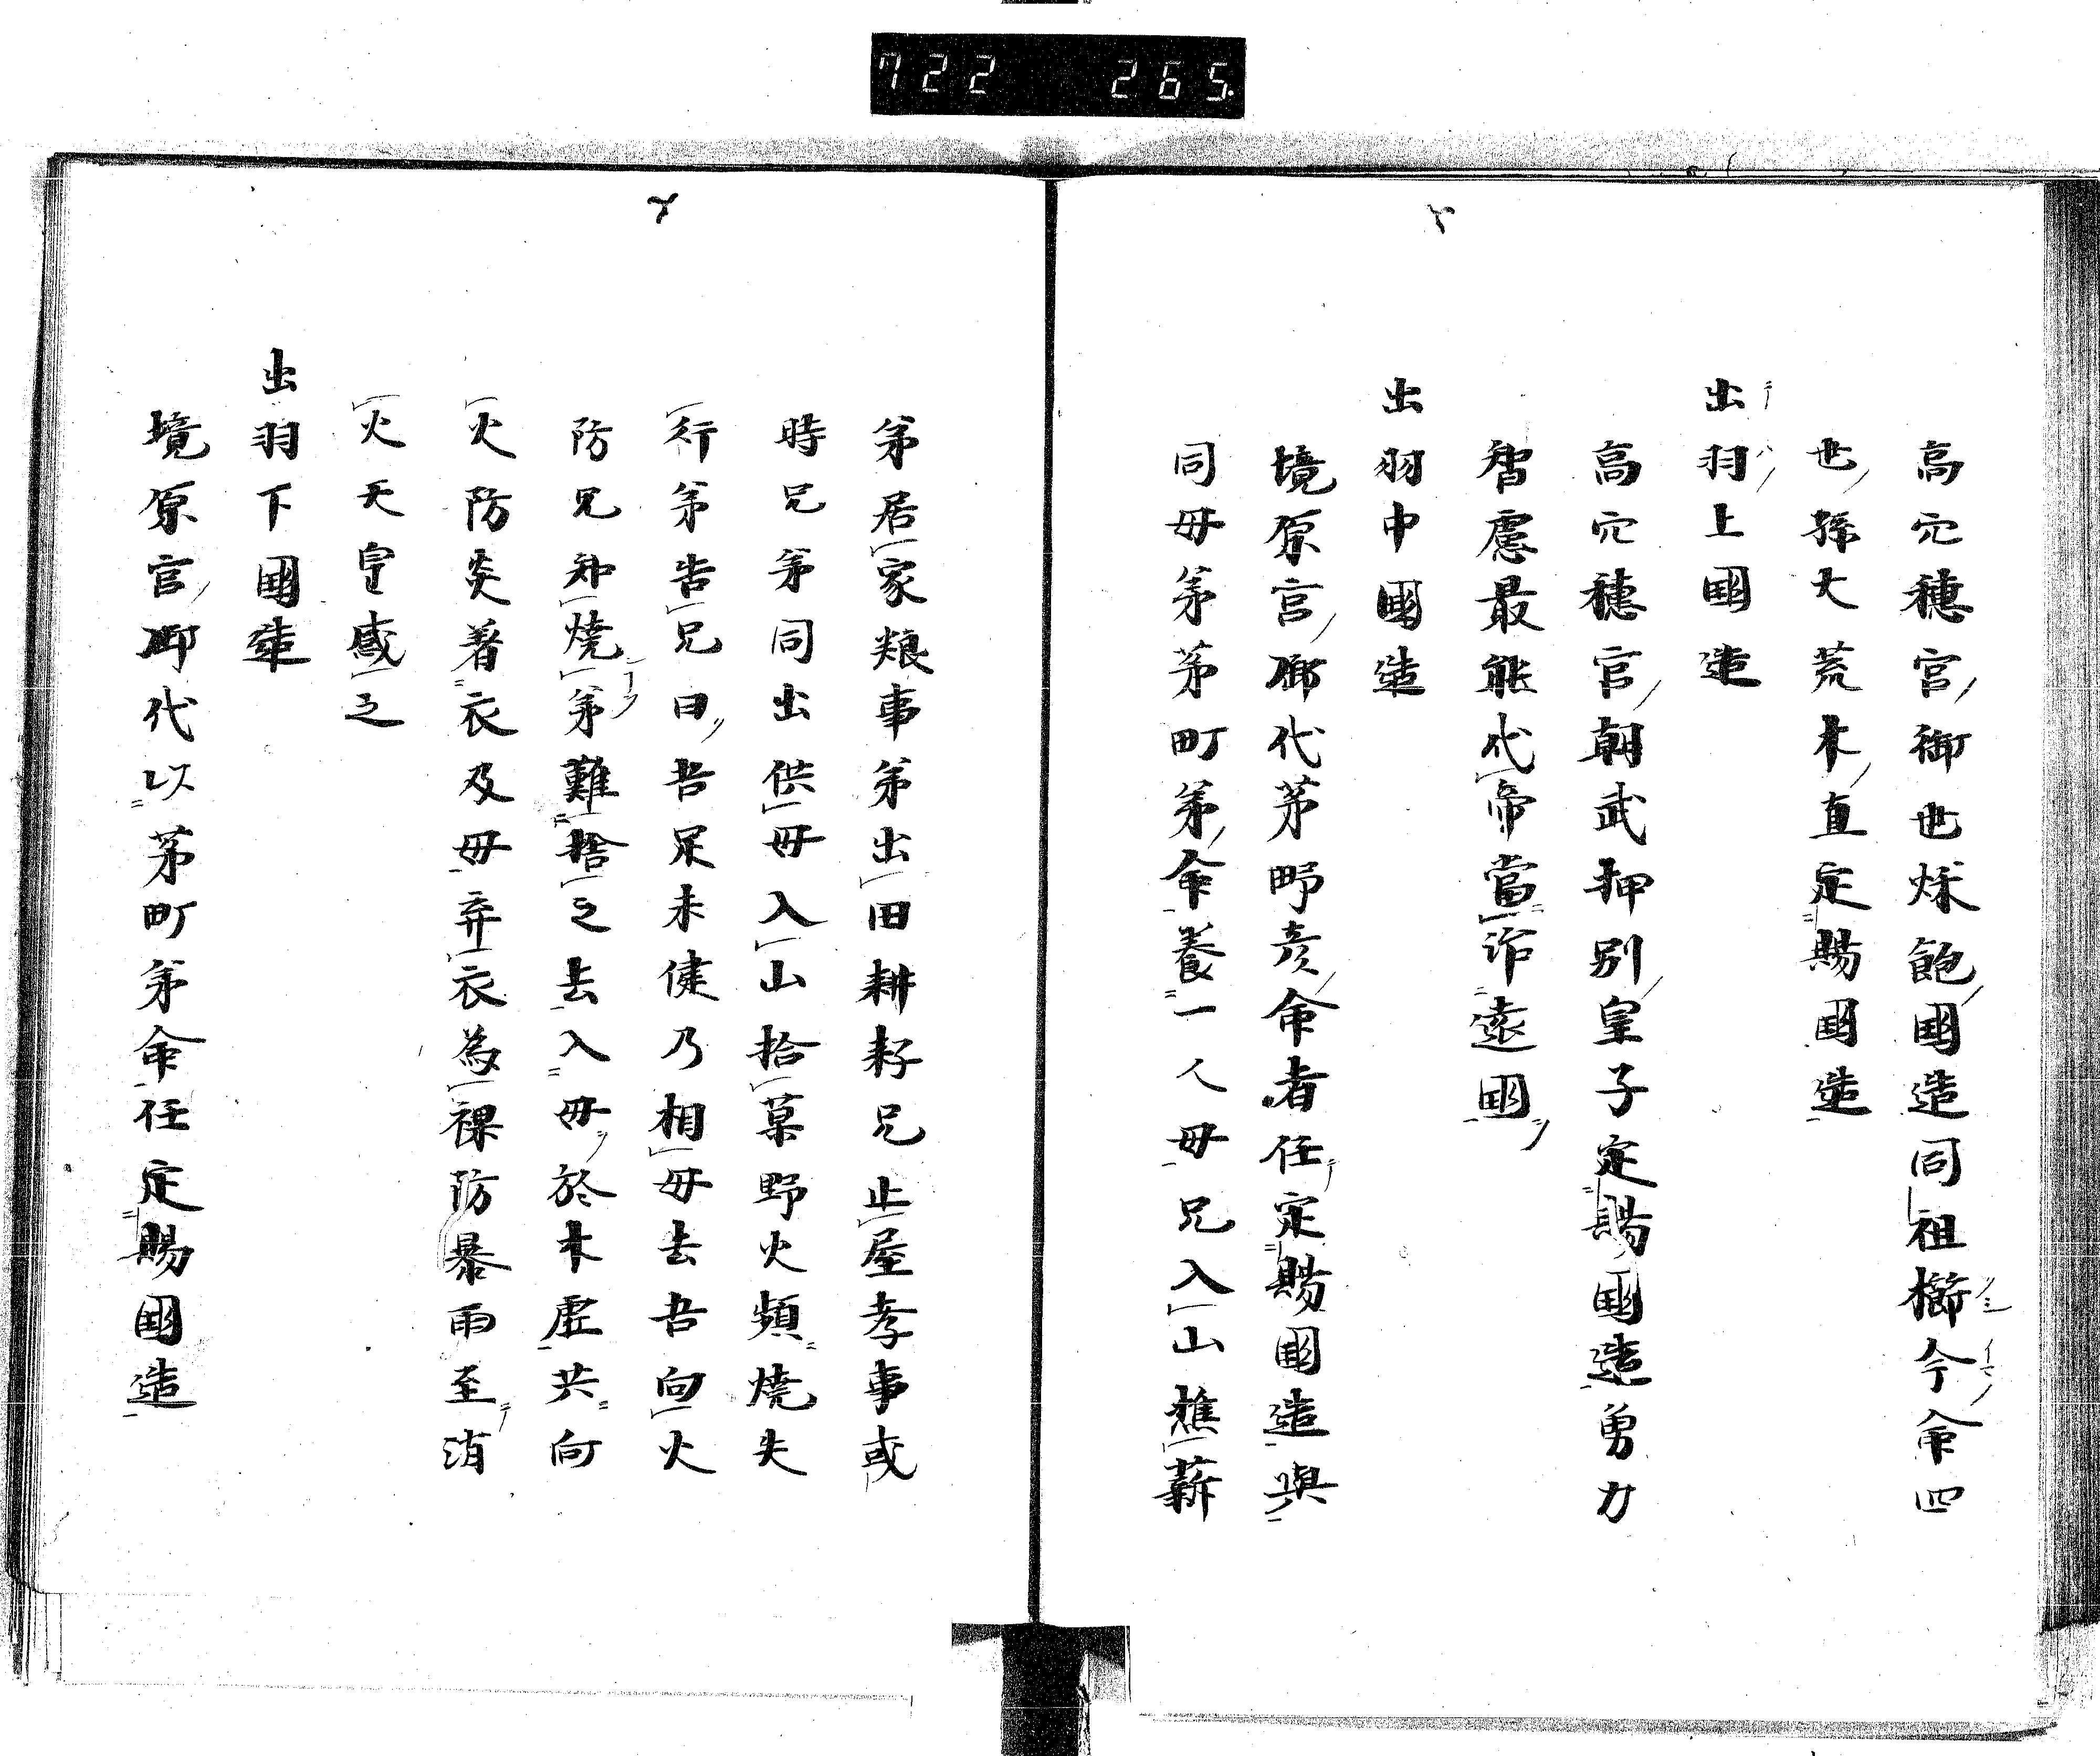 722 265
高穴穂宮御世炑飽國造同祖櫛今命四
世孫大荒木直定賜國造
出羽上國造
高穴穂宮朝武押別皇子定賜國造勇力
智慮最能代帝當作遠國
出羽中國造
境原宮御代茅野彦命者任定賜國造與
同母弟茅町弟命養一人母兄入山樵薪
弟居家粮事弟出田耕耔兄止屋孝事或
時兄弟同出供母入山拾菓野火頻燒失
行弟告兄曰吾足未健乃相母去吾向火
防兄知燒弟難捨之去入母於木虚共向
火防炎著衣及母弃衣為裸防暴雨至消
火天皇感之
出羽下國造
境原宮御代以茅町弟命任定賜國造